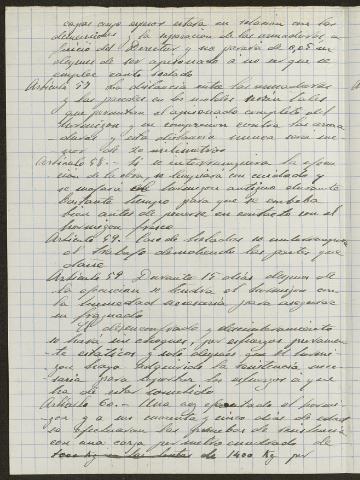 capas cuyo espesor estará en relación con los
y la separación de las armaduras a
juicio del Director y no pasará de 0,05 m
después de ser apisonado a no ser que se
emplee
Artículo 57 La distancia entre las armaduras
y las paredes en los moldes serán tales
que permitan el apisonado completo del
hormigón y su compresión contra las arma-
duras y esta distancia nunca será me-
nor de milímetros
Artículo 58.- Si se interrumpiera la ejecu-
ción de la obra se limpiará con cuidado y
se mojará el hormigón antiguo durante
bastante tiempo para que se embeba
bien antes de ponerse en contacto con el
hormigón fresco
Artículo 59. Caso de heladas se interrumpirá
el trabajo demoliendo las partes que
dañe
Artículo 59 Durante 15 días después de
la ejecución se tendrá el hormigón con
la humedad necesaria para asegurar
su fraguado
El desencofrado y descimbramiento
se hará sin choques, por esfuerzos puramen-
te estáticos y solo después que el hormi-
gón haya adquirido la resistencia nece-
saria para soportar los esfuerzos a que
ha de estar sometido
Artículo 60.- Una vez ejecutado el hormi-
gón y a los cuarenta y cinco días de edad
se efectuarán las pruebas de resistencia
con una carga por metro cuadrado de
1400 Kg por